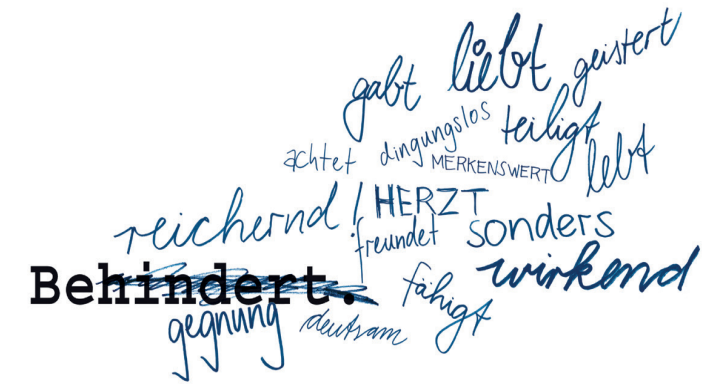 gabt liebt geistert
achtet dingungslos teiligt
MERKENSWERT lebt
reichernd! HERZT
freundet sonders
Behindert. fähigt wirkend
gegnung deutsam